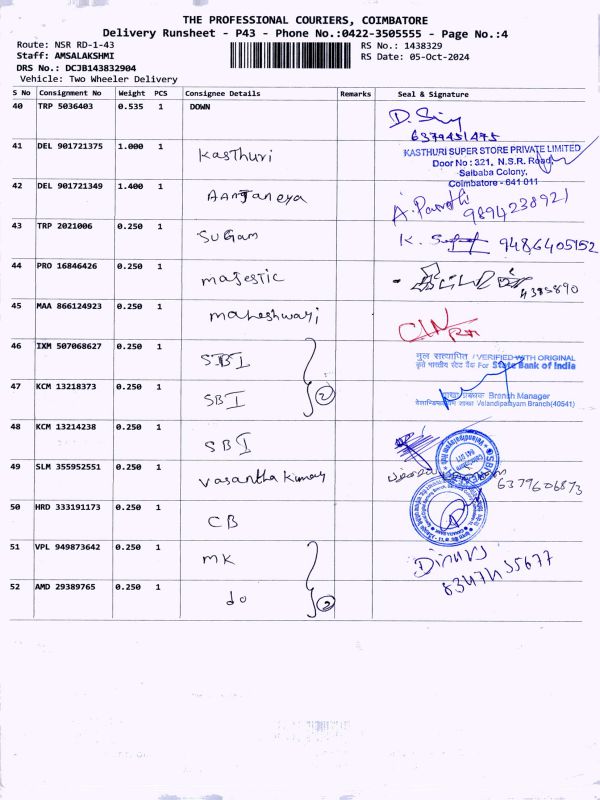 THE PROFESSIONAL COURIERS, COIMBATORE
Delivery Runsheet - P43 - Phone No.:0422-3505555 - Page No.:4
Route: NSR RD-1-43
RS No.: 1438329
Staff: AMSALAKSHMI
RS Date: 05-Oct-2024
DRS No.: DCJB143832904
Vehicle: Two Wheeler Delivery
S No Consignment No Weight PCS Consignee Details Remarks Seal & Signature
40 TRP 5036403 0.535 1 DOWN
6379451475
41 DEL 901721375 1.000 1 Kasthuri
KASTHURI SUPER STORE PRIVATE LIMITED
Door No : 321, N.S.R. Road,
Saibaba Colony,
Coimbatore - 641 011
42 DEL 901721349 1.400 1 Aanjaneya
9894238921
43 TRP 2021006 0.250 1 Sugam
9486405152
44 PRO 16846426 0.250 1 majestic
4385890
45 MAA 866124923 0.250 1 maheshwari
46 IXM 507068627 0.250 1 SBI
सत्यापित / VERIFIED WITH ORIGINAL
कृते भारतीय स्टेट बैंक For State Bank of India
47 KCM 13218373 0.250 1 SBI 2
शाखा प्रबंधक Branch Manager
शाखा Velandipalayam Branch(40541)
48 KCM 13214238 0.250 1 SBI
49 SLM 355952551 0.250 1 Vasantha Kumar
6379606873
50 HRD 333191173 0.250 1 CB
51 VPL 949873642 0.250 1 MK
52 AMD 29389765 0.250 1 do 2